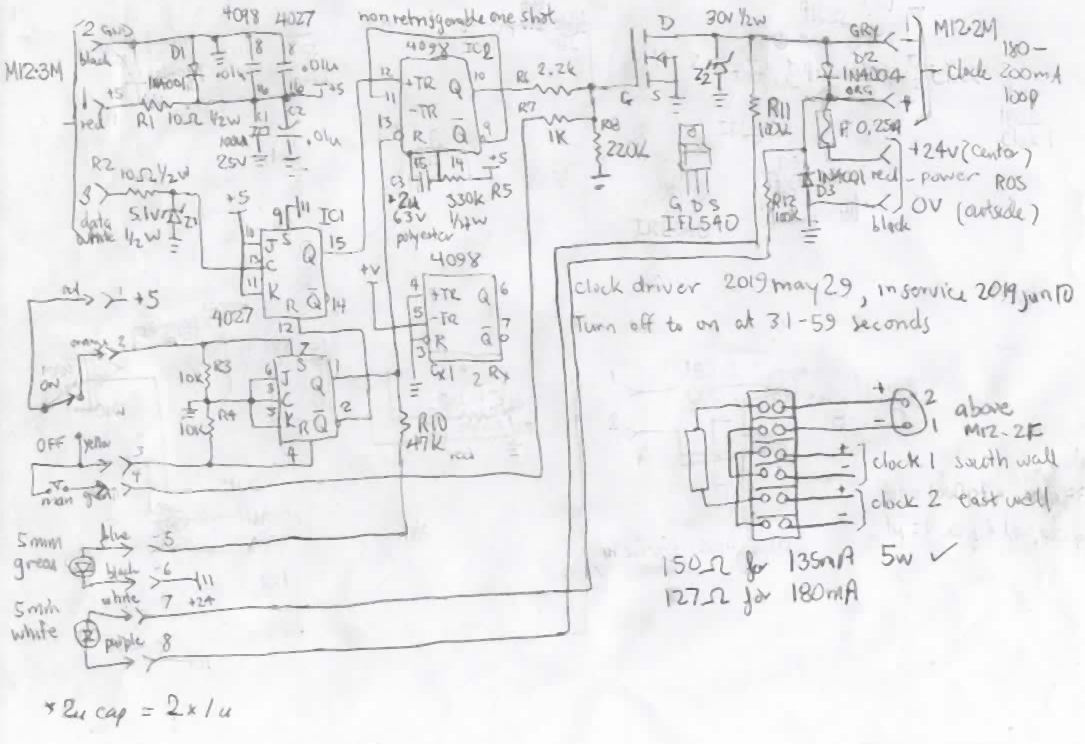 4098 4027
non retriggerable one shot
30V ½W
M12-2M
180-
200mA
100p
clock
2 GND
black
M12-3M
1 +5
red
D1
1N4001
R1 10Ω ½W
8
.01u
8
.01u
16
16
+5
C1
100u
25V
C2
.01u
4098 IC2
12
+TR
Q
10
11
-TR
13
R
Q
9
15
14
+5
C3
*2u
63V
polyester
330K
R5
R6 2.2K
R7
1K
R8
220K
D
G
S
Z2
GRY
1
D2
1N4004
ORG
R11
100K
F 0.25A
+24V (center)
1N4001 red - power ROS
D3
0V (outside)
black
R12
100K
G D S
IFL540
R2
10Ω ½W
3
data
white
5.1V
½W
Z1
+5
9
11
IC1
10
J
S
Q
15
13
C
11
K
R
Q
14
4027
12
+V
4098
4
+TR
Q
6
5
-TR
7
R
Q
3
Cx1
2 Rx
clock driver 2019 may 29, in service 2019 jun 10
Turn off to on at 31-59 seconds
red
1
+5
orange 2
ON
R3
10K
R4
10K
7
6
J
S
Q
1
3
C
5
K
R
Q
2
4
R10
47K
OFF
yellow
3
4
man
green
5mm
green
blue
5
black
6
white
7
+24
5mm
white
purple
8
+
2
-
1
above
M12-2F
+
-
clock 1 south wall
+
-
clock 2 east wall
150Ω for 135mA 5w ✓
127Ω for 180mA
*2u cap = 2 x 1u